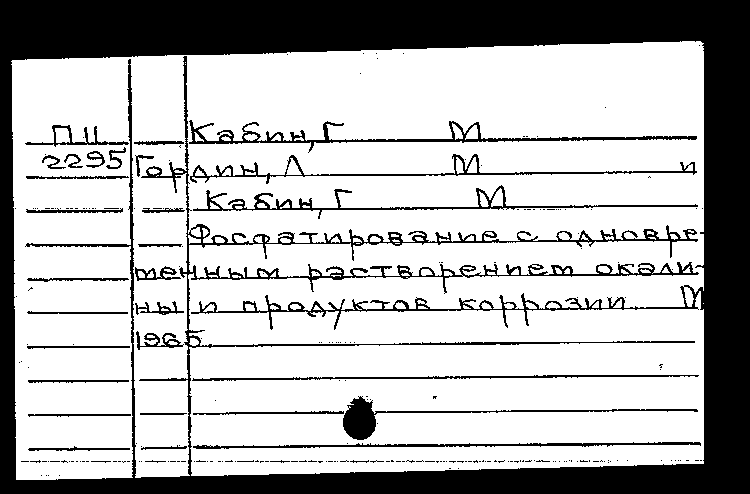 ПЦ Кабин, Г М
2295 Гордин, Л М и
Кабин, Г М
Фосфатирование с одновре-
менным растворением окали-
ны и продуктов коррозии М
1965.